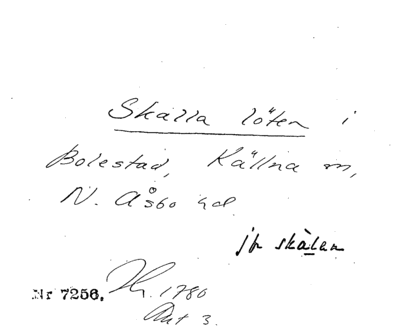 Skälla löten i
Bolestad, Källna sn,
N. Åsbo hd.
jfr skàlan
Nr 7256. 1780
Akt 3.